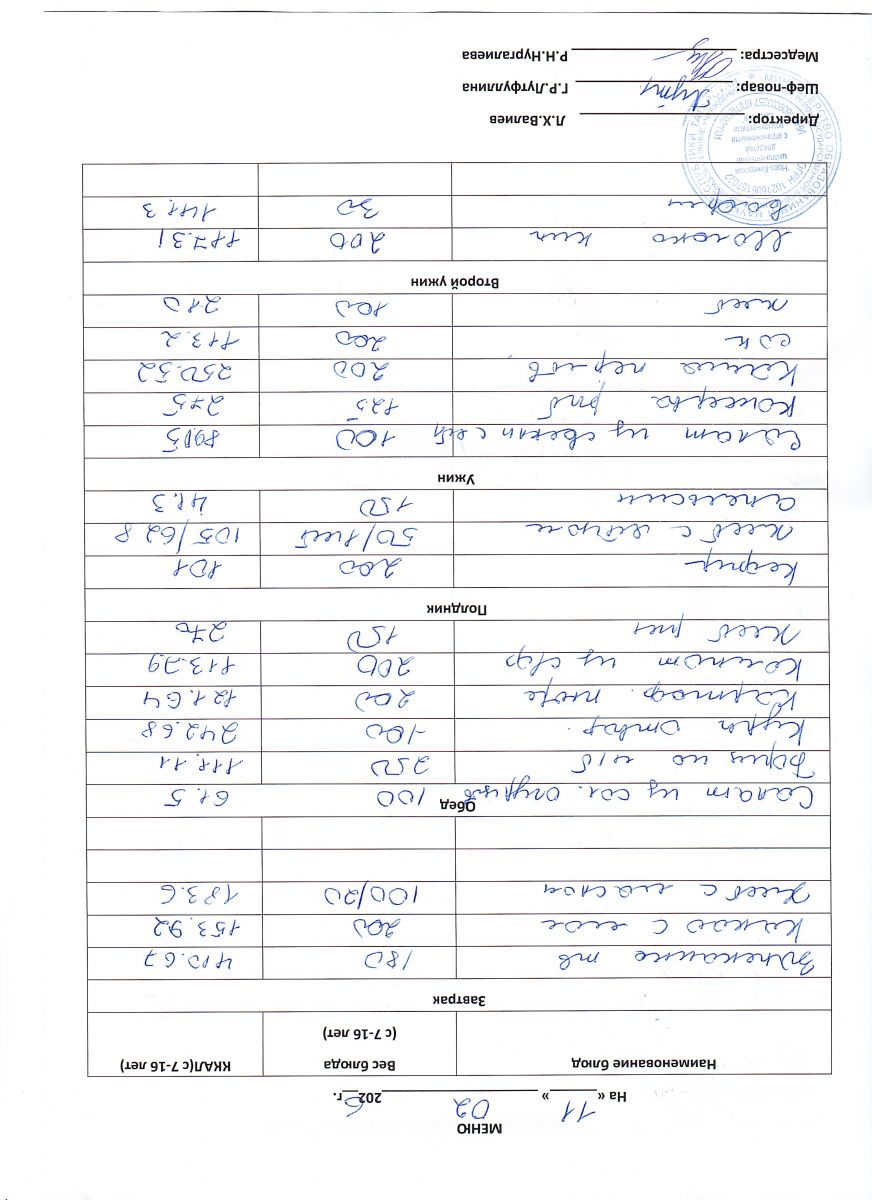 МЕНЮ
На « 11 » 02 2026 г.
Наименование блюд Вес блюда (с 7-16 лет) ККАЛ(с 7-16 лет)
Завтрак
Запеканка тв 180 410.67
Какао с мол 200 153.92
Хлеб с маслом 100/20 183.6
Обед
Салат из сол. огурцов 100 61.5
Борщ по м/б 250 111.11
Куры отвар. 100 242.68
Картоф. пюре 200 121.64
Компот из с/фр 200 113.79
Хлеб рж 150 270
Полдник
Кефир 200 101
Хлеб с 50/1шт 105/62.8
Апельсин 150 41.3
Ужин
Салат из свеклы с 100
Консерва рыб 125 275
Каша перлов 200 250.52
сок 200 113.2
хлеб 100 210
Второй ужин
Молоко кип 200 117.31
Вафли 30 141.3
Директор: Л.Х.Валиев
Шеф-повар: Г.Р.Лутфуллина
Медсестра: Р.Н.Нургалиева